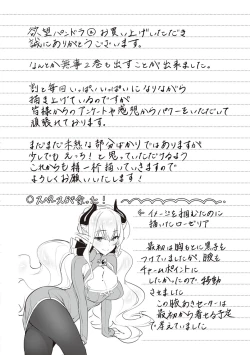 欲望パンドラ②お買い上げいただき
誠にありがとうございます。
なんとか無事2巻も出すことが出来ました。
割と毎回いっぱいいっぱいになりながら
描き上げているのですが
皆様からのアンケートや感想からパワーをいただいて
頑張れております。
まだまだ未熟な部分ばかりではありますが
少しでもえっち!と思っていただけるよう
これからも精一杯描いていきますので
よろしくお願いいたします!
○スペースが余った!
←イメージを掴むために
描いたローゼリア
最初は胸もとに黒子も
つけていましたが、腋を
チャームポイントに
したかったので移動
させました
この腋あきセーターは
最初から着せる予定
で考えていました